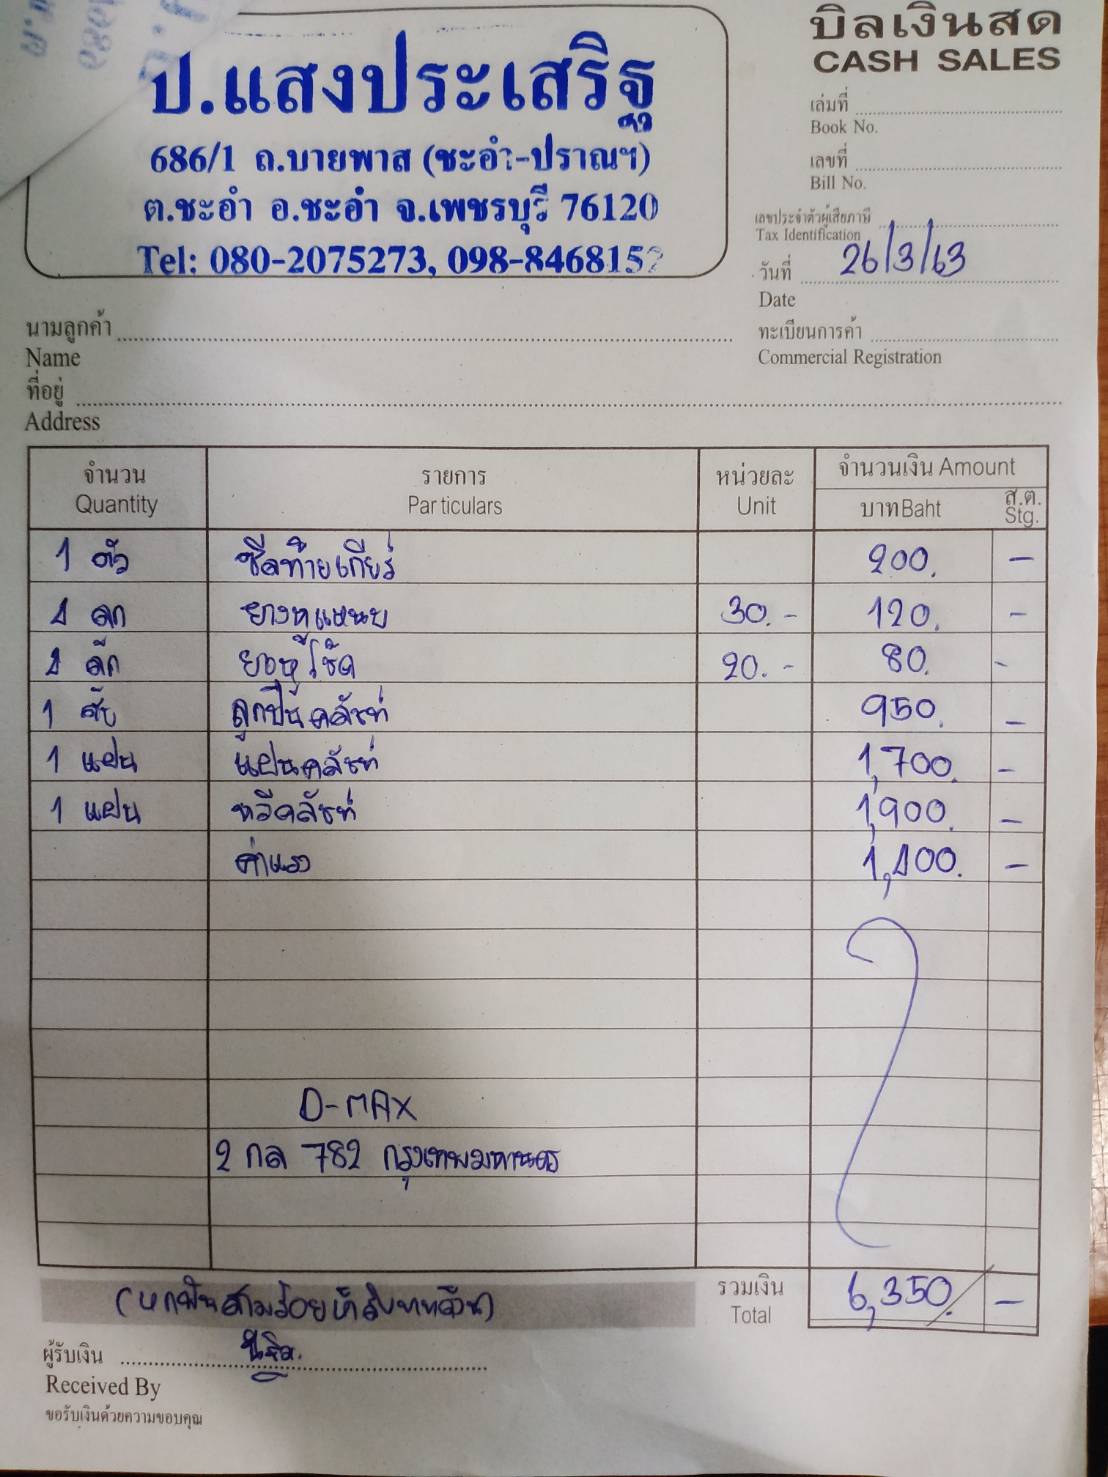 บิลเงินสด
CASH SALES
ป.แสงประเสริฐ
686/1 ถ.บายพาส (ชะอำ-ปราณฯ)
ต.ชะอำ อ.ชะอำ จ.เพชรบุรี 76120
Tel: 080-2075273, 098-8468152
เล่มที่
Book No.
เลขที่
Bill No.
เลขประจำตัวผู้เสียภาษี
Tax Identification
วันที่ 26/3/63
Date
ทะเบียนการค้า
Commercial Registration
นามลูกค้า
Name
ที่อยู่
Address
จำนวน รายการ หน่วยละ จำนวนเงิน Amount
Quantity Particulars Unit บาท Baht ส.ต. Stg.
1 ตัว ซีลท้ายเกียร์ 200. -
4 ลูก ยางหูแหนบ 30.- 120. -
4 ลูก ยางหูโช้ค 20.- 80. -
1 ลูกปืนคลัชท์ 950. -
1 แผ่น แผ่นคลัชท์ 1,700. -
1 แผ่น หวีคลัชท์ 1,900. -
ค่าแรง 1,400. -
D-MAX
2 กล 782 กรุงเทพมหานคร
(หกพันสามร้อยห้าสิบบาทถ้วน) รวมเงิน 6,350. -
Total
ผู้รับเงิน
Received By
ขอรับเงินด้วยความขอบคุณ